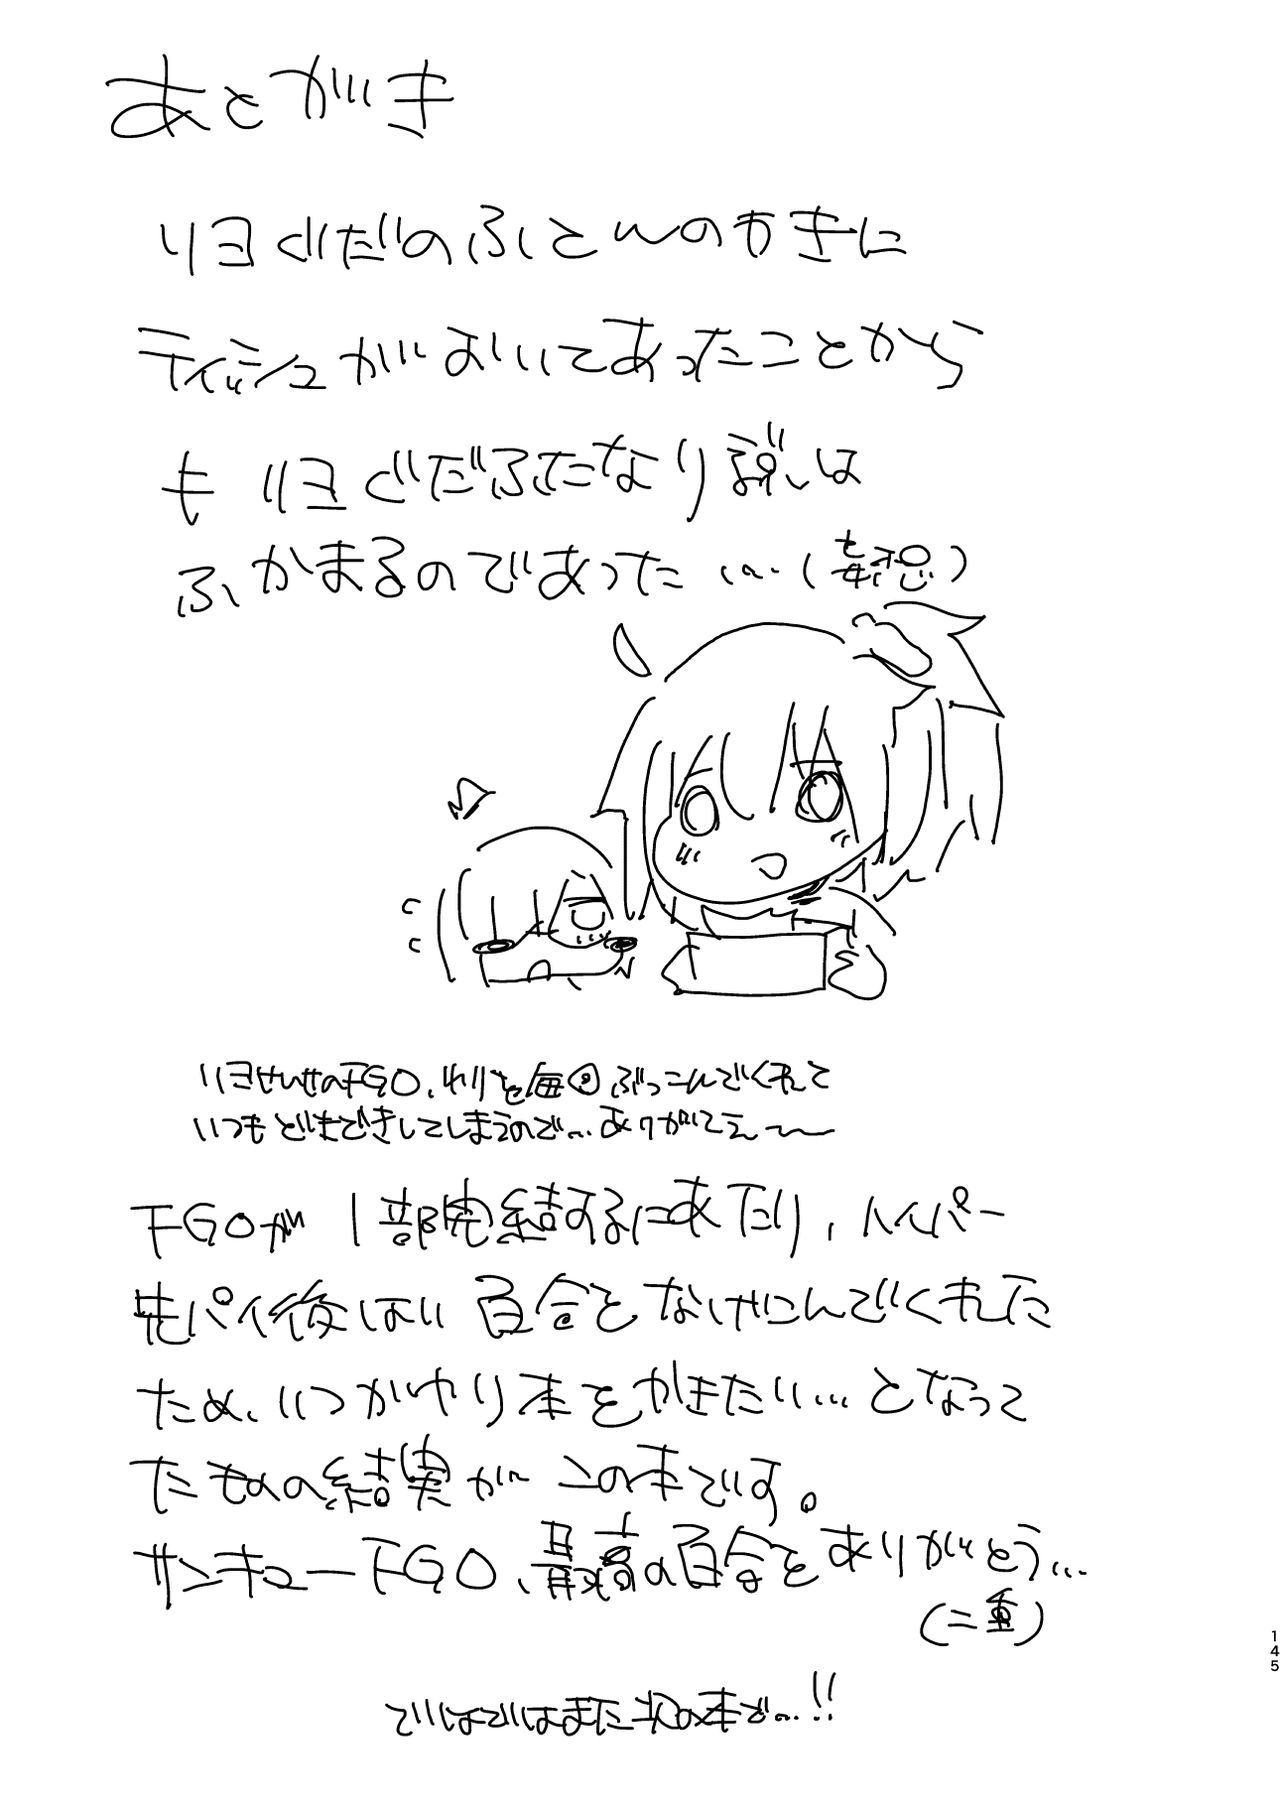 あとがき
リヨぐだのふとんのわきに
ティッシュがおいてあったことから
も リヨぐだふたなり説は
ふかまるのであった…(毒想)
リヨせんせのFGO、わりと毎回ぶっこんでくれて
いつもどぎまぎしてしまうので…ありがてえ〜
FGOが1部完結するにあたり、ハイパー
先パイ後はい百合をなげこんでくれた
ため、いつかやり本をかきたい…となって
たものの結実がこの本です。
サンキューFGO、最高の百合をありがとう…
(二重)
ではではまた次の本で…!!
145